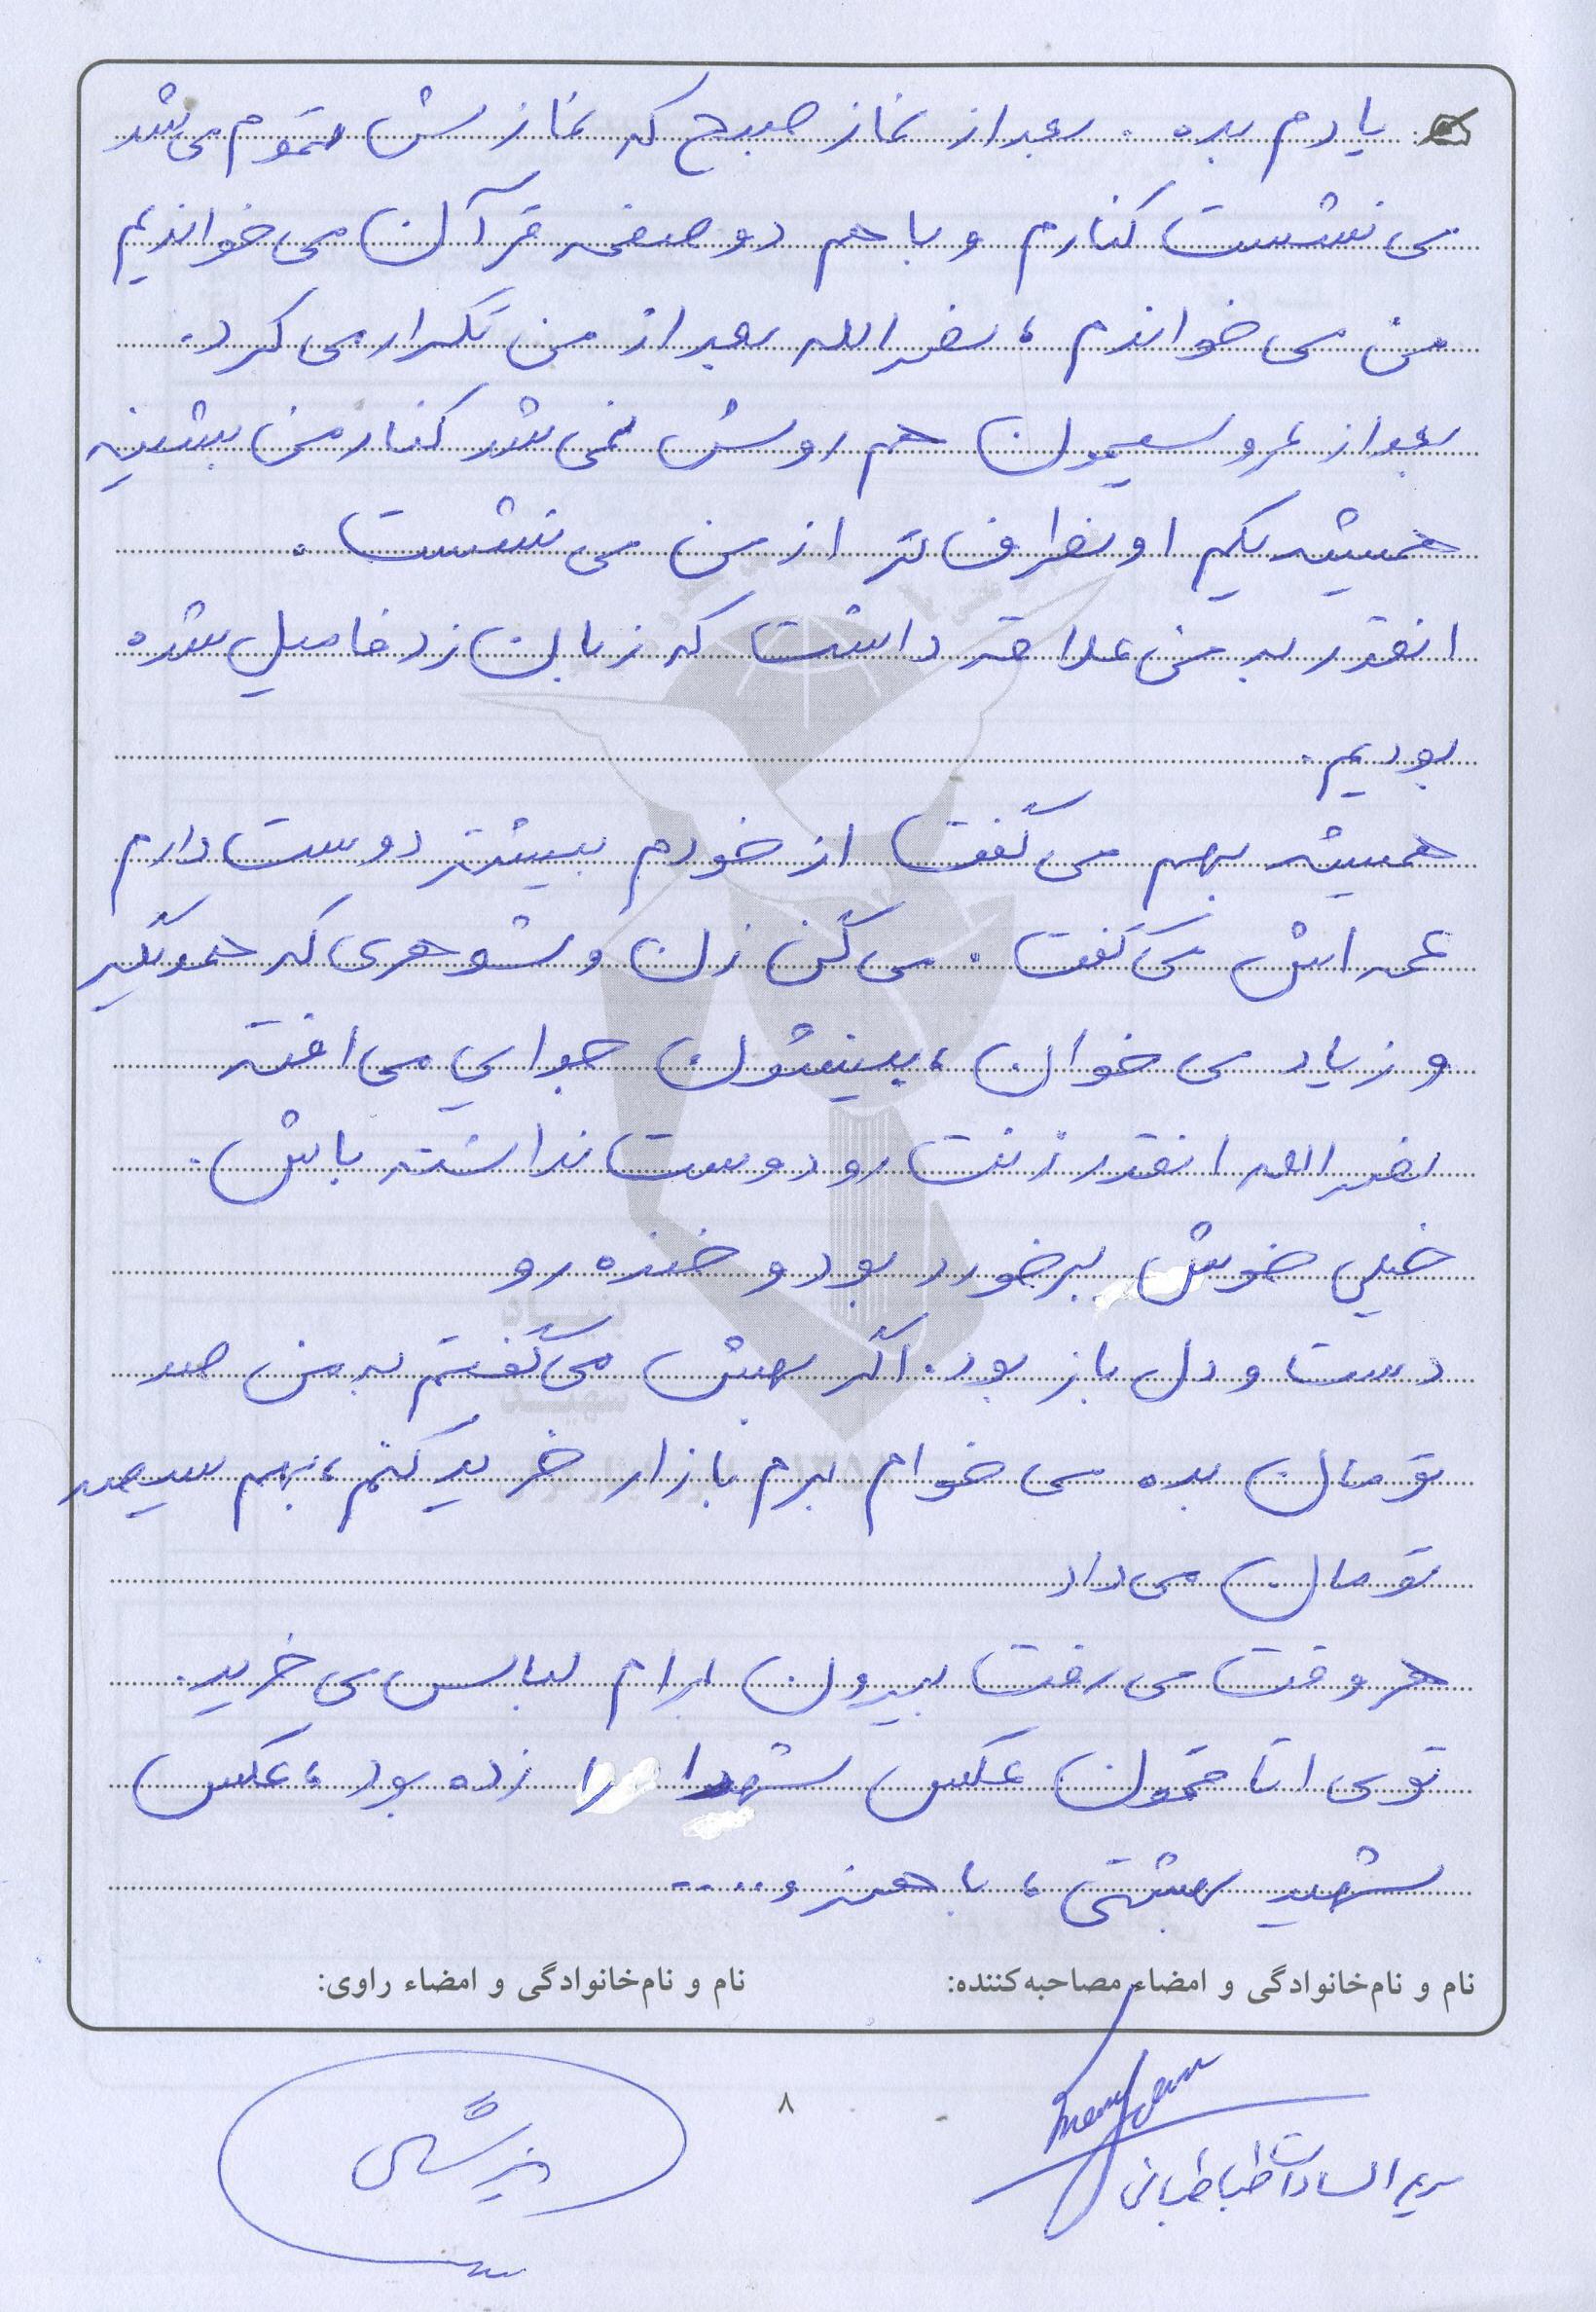 یادم بده. بعد از نماز صبح که نمازش تموم می‌شد
می نشست کنارم و با هم دو صفحه قرآن می خواندیم
من می خواندم، نصرالله بعد از من تکرار می کرد.
بعد از عروسیمون هم روش نمی شد کنار من بشینه
همیشه یکم اونطرف تر از من می نشست.
انقدر به من علاقه داشت که زبان زد فامیل شده
بودیم.
همیشه بهم می گفت از خودم بیشتر دوست دارم
عمه اش می گفت. می گن زن و شوهری که همدیگیر
و زیاد می خوان، بینشون جدایی می افته
نصرالله انقدر زنت رو دوست نداشته باش.
خیلی خوش برخورد بود و خنده رو
دست و دل باز بود. اگر بهش می گفتم به من صد
تومان بده می خوام برم بازار خرید کنم، بهم سیصد
تومان می داد
هر وقت می رفت بیرون برام لباس می خرید.
توی اتاقمون عکس شهدا را زده بود، عکس
شهید بهشتی، باهنر و....
نام و نام‌خانوادگی و امضاء مصاحبه‌کننده: نام و نام‌خانوادگی و امضاء راوی:
۸
مریم السادات طباطبائی
بنیاد
شهید